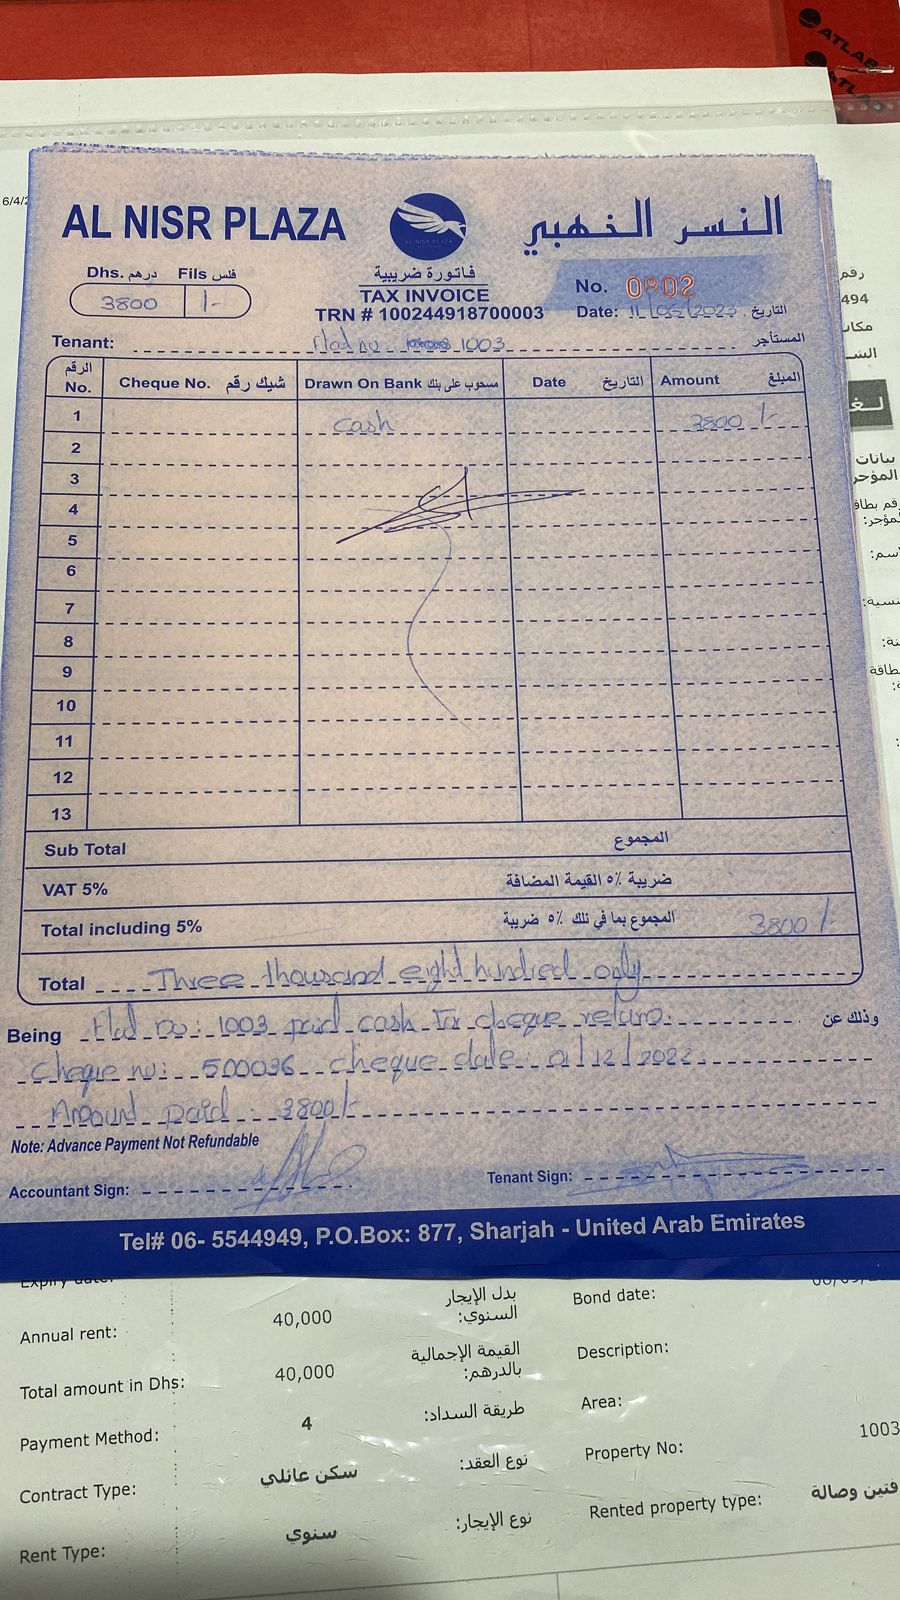 ATLAB
ATLAB
6/4/2
AL NISR PLAZA
AL NISR PLAZA
النسر الذهبي
Dhs. درهم Fils فلس
3800 /-
فاتورة ضريبية
TAX INVOICE
TRN # 100244918700003
No. 0802
Date: 11/05/2023 التاريخ
Tenant: Flat no: 1003 المستأجر
الرقم No. Cheque No. شيك رقم Drawn On Bank مسحوب على بنك Date التاريخ Amount المبلغ
1 Cash 3800 /-
2
3
4
5
6
7
8
9
10
11
12
13
Sub Total المجموع
VAT 5% ضريبة ٥٪ القيمة المضافة
Total including 5% المجموع بما في ذلك ٥٪ ضريبة 3800 /-
Total Three thousand eight hundred only
Being Flat no: 1003 paid cash for cheque return. وذلك عن
Cheque no: 500036 cheque date: 01/12/2022
Amount paid 3800/-
Note: Advance Payment Not Refundable
Accountant Sign: Tenant Sign:
Tel# 06- 5544949, P.O.Box: 877, Sharjah - United Arab Emirates
رقم
494
مكان
بيانات
المؤجر
Expiry date:
Annual rent: 40,000 بدل الإيجار السنوي: Bond date:
Total amount in Dhs: 40,000 القيمة الإجمالية بالدرهم: Description:
Payment Method: 4 طريقة السداد: Area:
Contract Type: سكن عائلي نوع العقد: Property No: 1003
Rent Type: سنوي نوع الإيجار: Rented property type: وصالة